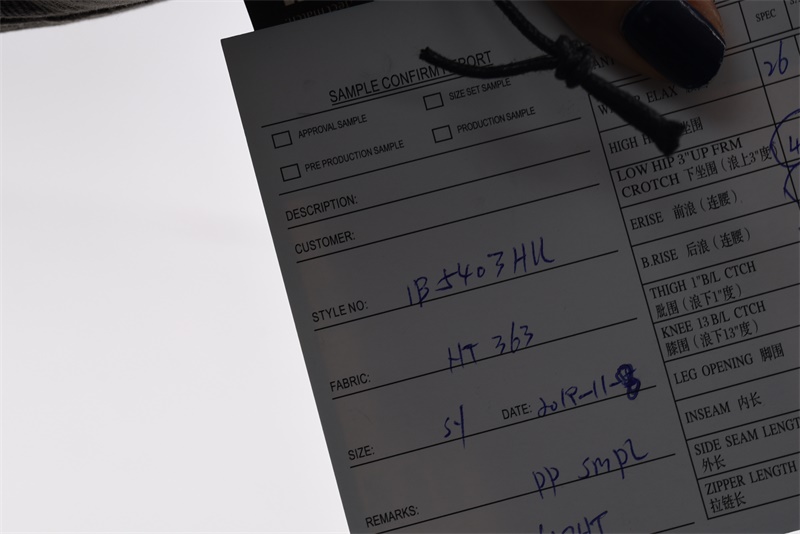 SAMPLE CONFIRM REPORT
APPROVAL SAMPLE
SIZE SET SAMPLE
PRE PRODUCTION SAMPLE
PRODUCTION SAMPLE
DESCRIPTION:
CUSTOMER:
STYLE NO: 1B5403HU
FABRIC: HT 363
SIZE:
DATE: 2019-11-8
REMARKS: PP smpl
SPEC
26
HIGH 坐围
LOW HIP 3"UP FRM
CROTCH 下坐围(浪上3"度)
F.RISE 前浪(连腰)
B.RISE 后浪(连腰)
THIGH 1"B/L CTCH
髀围(浪下1"度)
KNEE 13 B/L CTCH
膝围(浪下13"度)
LEG OPENING 脚围
INSEAM 内长
SIDE SEAM LENGT
外长
ZIPPER LENGTH
拉链长